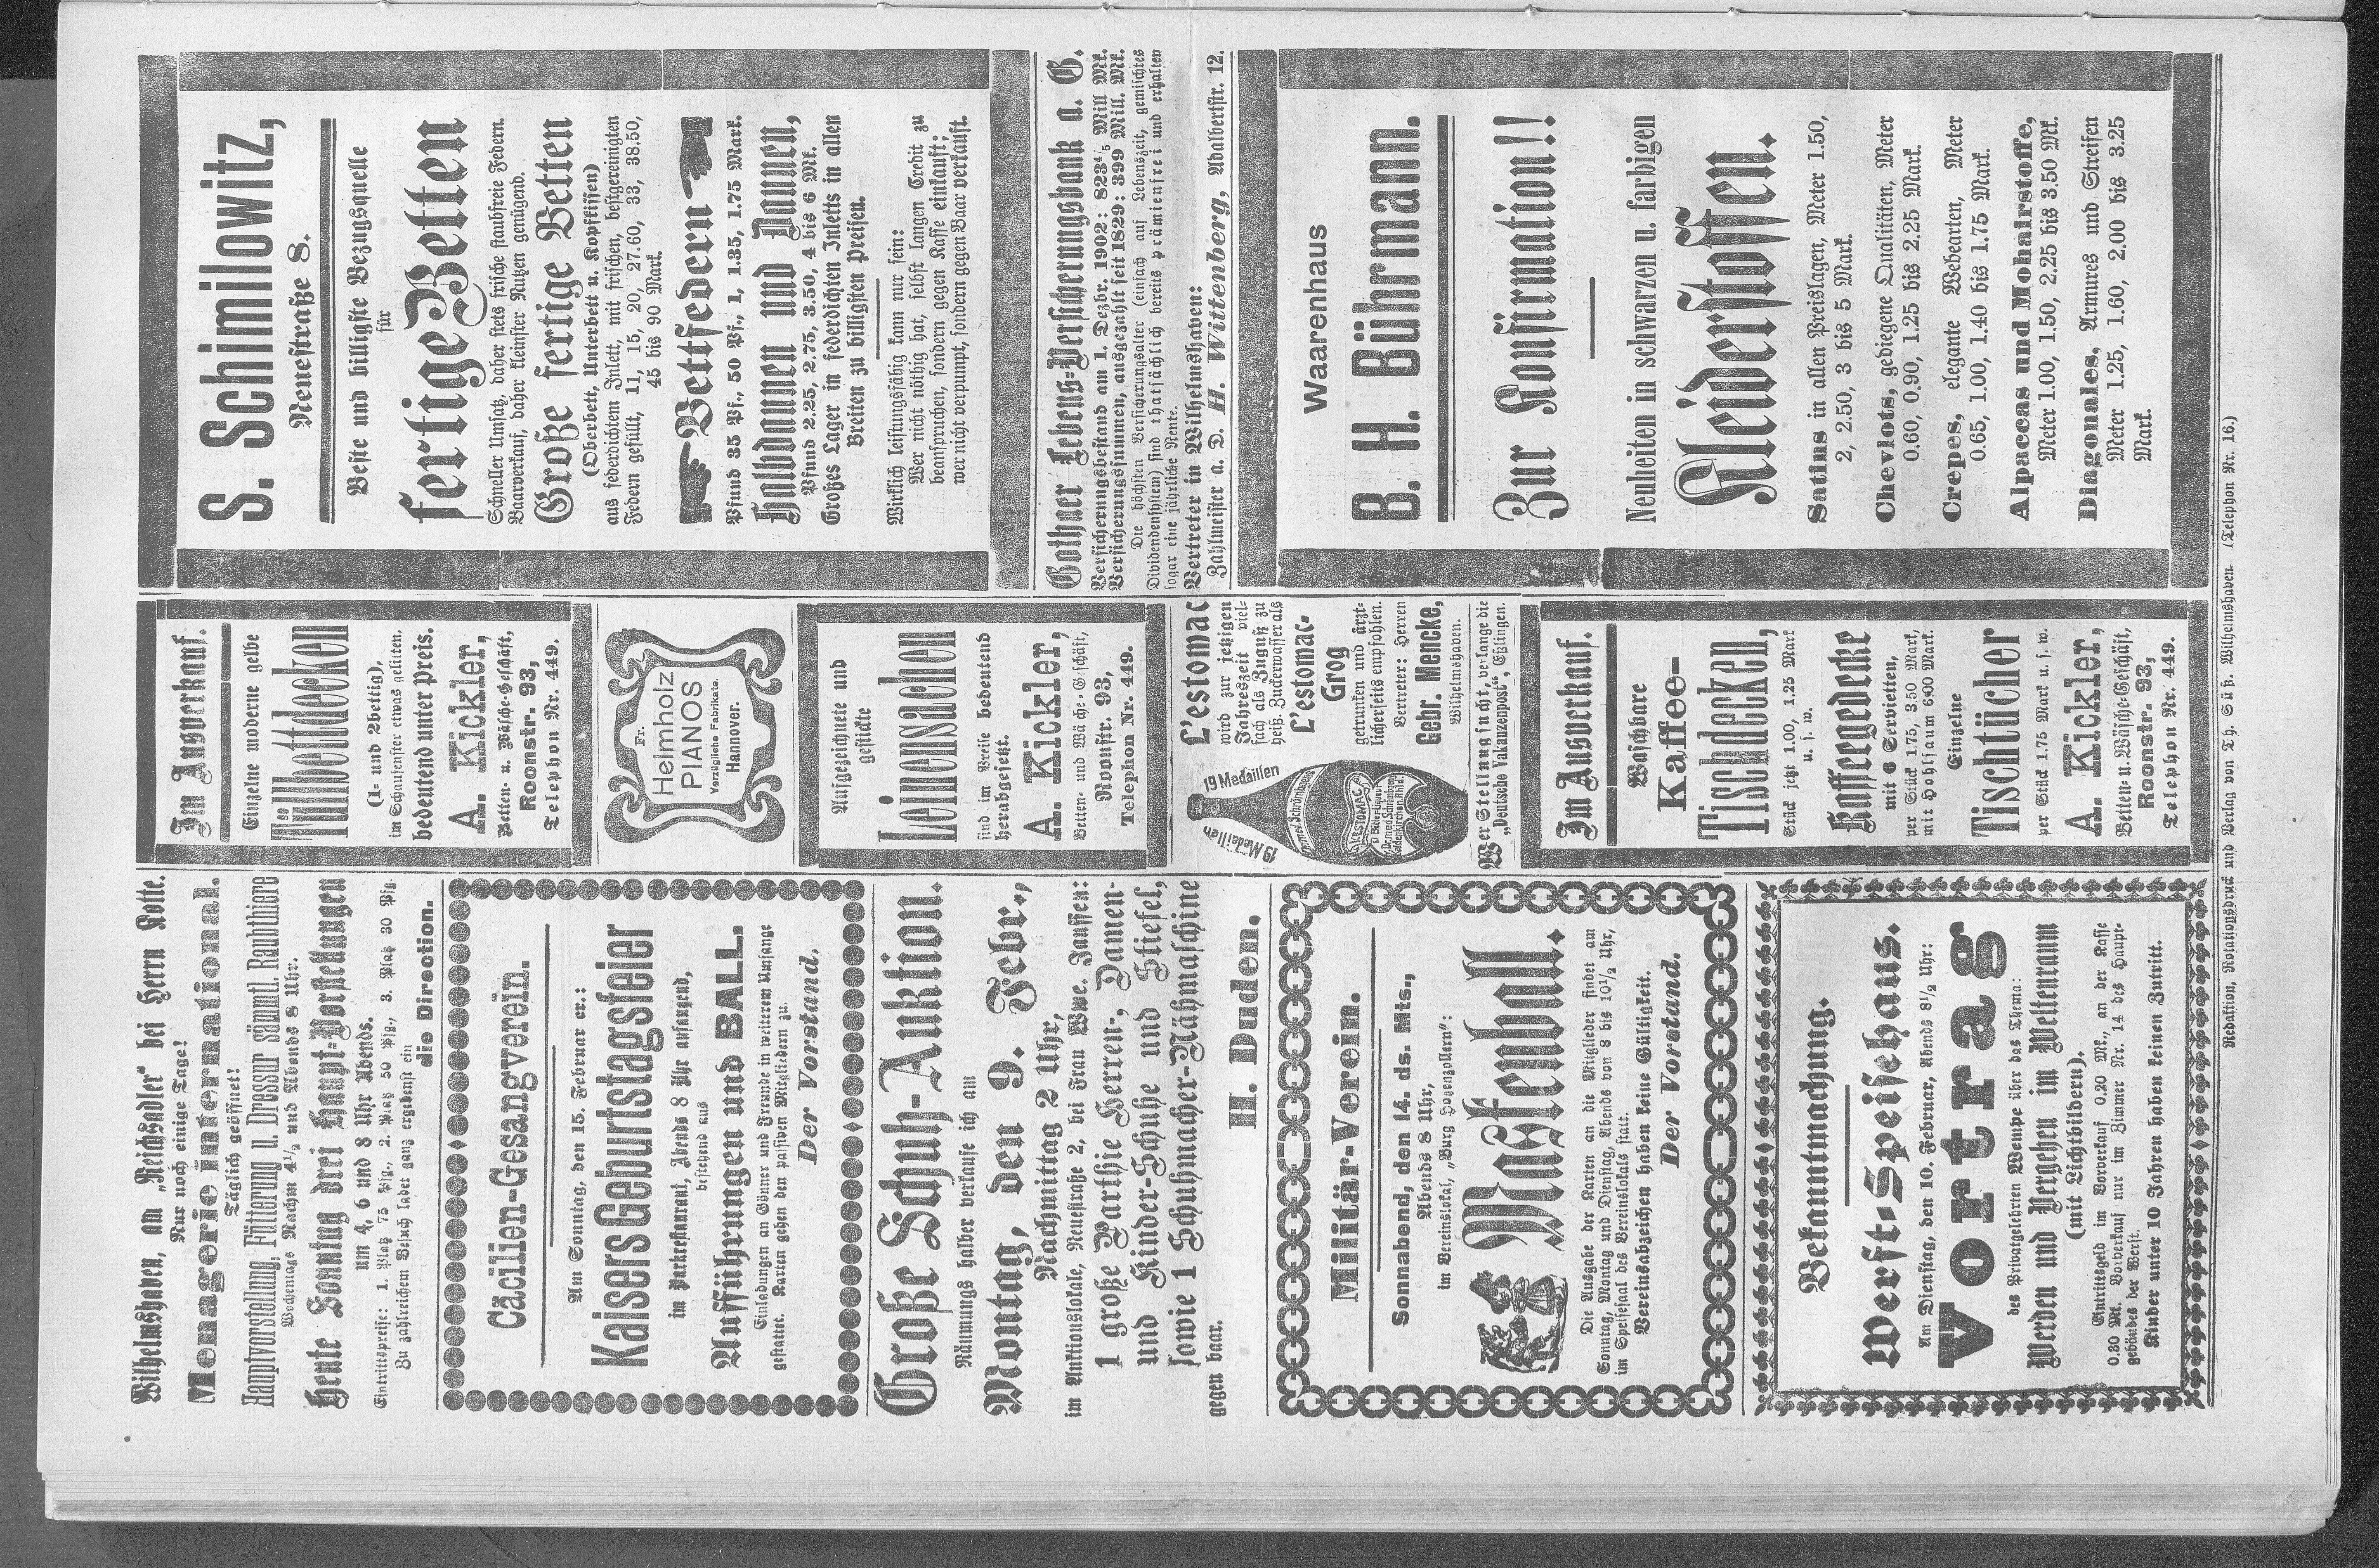 Wilhelmshaven, am „Reichsadler“ bei Herrn Kotte.
Nur noch einige Tage!
Menagerie international.
Täglich geöffnet!
Hauptvorstellung, Fütterung u. Dressur sämmtl. Raubthiere
Wochentags Nachm 4½ und Abends 8 Uhr.
Heute Sonntag drei Haupt-Vorstellungen
um 4, 6 und 8 Uhr Abends.
Eintrittspreise: 1. Platz 75 Pfg., 2. Platz 50 Pfg., 3. Platz 30 Pfg.
Zu zahlreichem Besuch ladet ganz ergebenst ein
die Direction.
Cäcilien-Gesangverein.
Am Sonntag, den 15. Februar cr.:
Kaisers Geburtstagsfeier
im Parkrestaurant, Abends 8 Uhr anfangend,
bestehend aus
Aufführungen und BALL.
Einladungen an Gönner und Freunde in weiterem Umfange
gestattet. Karten gehen den passiven Mitgliedern zu.
Der Vorstand.
Große Schuh-Auktion.
Räumungs halber verkaufe ich am
Montag, den 9. Febr.,
Nachmittag 2 Uhr,
im Auktionslokale, Neuestraße 2, bei Frau Wwe. Janssen:
1 große Parthie Herren-, Damen-
und Kinder-Schuhe und Stiefel,
sowie 1 Schuhmacher-Nähmaschine
gegen baar.
H. Duden.
Militär-Verein.
Sonnabend, den 14. ds. Mts.,
Abends 8 Uhr,
im Vereinslokal, „Burg Hohenzollern“:
Maskenball.
Die Ausgabe der Karten an die Mitglieder findet am
Sonntag, Montag und Dienstag, Abends von 8 bis 10½ Uhr,
im Speisesaal des Vereinslokals statt.
Vereinsabzeichen haben keine Gültigkeit.
Der Vorstand.
Bekanntmachung.
Werft-Speisehaus.
Am Dienstag, den 10. Februar, Abends 8½ Uhr:
Vortrag
des Privatgelehrten Wempe über das Thma:
Werden und Vergehen im Weltenraum
(mit Lichtbildern).
Eintrittsgeld im Vorverkauf 0.20 Mk., an der Kasse
0.30 Mk. Vorverkauf nur im Zimmer Nr. 14 des Haupt-
gebäudes der Werft.
Kinder unter 10 Jahren haben keinen Zutritt.
Im Ausverkauf.
Einzelne moderne gelbe
Tüllbettdecken
(1- und 2bettig),
im Schaufenster etwas gelitten,
bedeutend unter Preis.
A. Kickler,
Betten- u. Wäsche-Geschäft,
Roonstr. 93,
Telephon Nr. 449.
Fr.
Helmholz
PIANOS
Vorzügliche Fabrikate.
Hannover.
Aufgezeichnete und
gestickte
Leinensachen
sind im Preise bedeutend
herabgesetzt.
A. Kickler,
Betten- und Wäsche-Geschäft,
Roonstr. 93,
Telephon Nr. 449.
19 Medaillen
19 Medaillen
L'ESTOMAC
L'estomac
wird zur jetzigen
Jahreszeit viel-
fach als Zuguß zu
heiß. Zuckerwasser als
L'estomac-
Grog
getrunken und ärzt-
licherseits empfohlen.
Vertreter: Herren
Gebr. Mencke,
Wilhelmshaven.
Wer Stellung sucht, verlange die
„Deutsche Vakanzenpost“, Eßlingen.
Im Ausverkauf.
Waschbare
Kaffee-
Tischdecken,
Stück jetzt 1.00, 1.25 Mark
u. s. w.
Kaffeegedecke
mit 6 Servietten,
per Stück 1.75, 3.50 Mark,
mit Hohlsaum 6.00 Mark.
Einzelne
Tischtücher
per Stück 1.75 Mark u. s. w.
A. Kickler,
Betten- u. Wäsche-Geschäft,
Roonstr. 93,
Telephon Nr. 449.
S. Schimilowitz,
Neuestraße 8.
Beste und billigste Bezugsquelle
für
fertige Betten
Schneller Umsatz, daher stets frische staubfreie Federn.
Baarverkauf, daher kleinster Nutzen genügend.
Große fertige Betten
(Oberbett, Unterbett u. Kopfkissen)
aus federdichtem Inlett, mit frischen, bestgereinigten
Federn gefüllt, 11, 15, 20, 27.60, 33, 38.50,
45 bis 90 Mark.
Bettfedern
Pfund 35 Pf., 50 Pf., 1, 1.35, 1.75 Mark.
Halbdaunen und Daunen,
Pfund 2.25, 2.75, 3.50, 4 bis 6 Mk.
Großes Lager in federdichten Inletts in allen
Breiten zu billigsten Preisen.
Wirklich leistungsfähig kann nur sein:
Wer nicht nöthig hat, selbst langen Credit zu
beanspruchen, sondern gegen Kasse einkauft;
wer nicht verpumpt, sondern gegen Baar verkauft.
Gothaer Lebens-Versicherungsbank a. G.
Versicherungsbestand am 1. Dezbr. 1902: 823⅘ Mill Mk.
Versicherungssummen, ausgezahlt seit 1829: 399 Mill. Mk.
Die höchsten Versicherungsalter (einfach auf Lebenszeit, gemischtes
Dividendensystem) sind thatsächlich bereits prämienfrei und erhalten
sogar eine jährliche Rente.
Vertreter in Wilhelmshaven:
Zahlmeister a. D. H. Wittenberg, Adalbertstr. 12.
Waarenhaus
B. H. Bührmann.
Zur Konfirmation!!
Neuheiten in schwarzen u. farbigen
Kleiderstoffen.
Satins in allen Preislagen, Meter 1.50,
2, 2.50, 3 bis 5 Mark.
Cheviots, gediegene Qualitäten, Meter
0.60, 0.90, 1.25 bis 2.25 Mark.
Crepes, elegante Webearten, Meter
0.65, 1.00, 1.40 bis 1.75 Mark.
Alpaccas und Mohairstoffe,
Meter 1.00, 1.50, 2.25 bis 3.50 Mk.
Diagonales, Armures und Streifen
Meter 1.25, 1.60, 2.00 bis 3.25
Mark.
Redaktion, Rotationsdruck und Verlag von Th. Süß, Wilhelmshaven. (Telephon Nr. 16.)